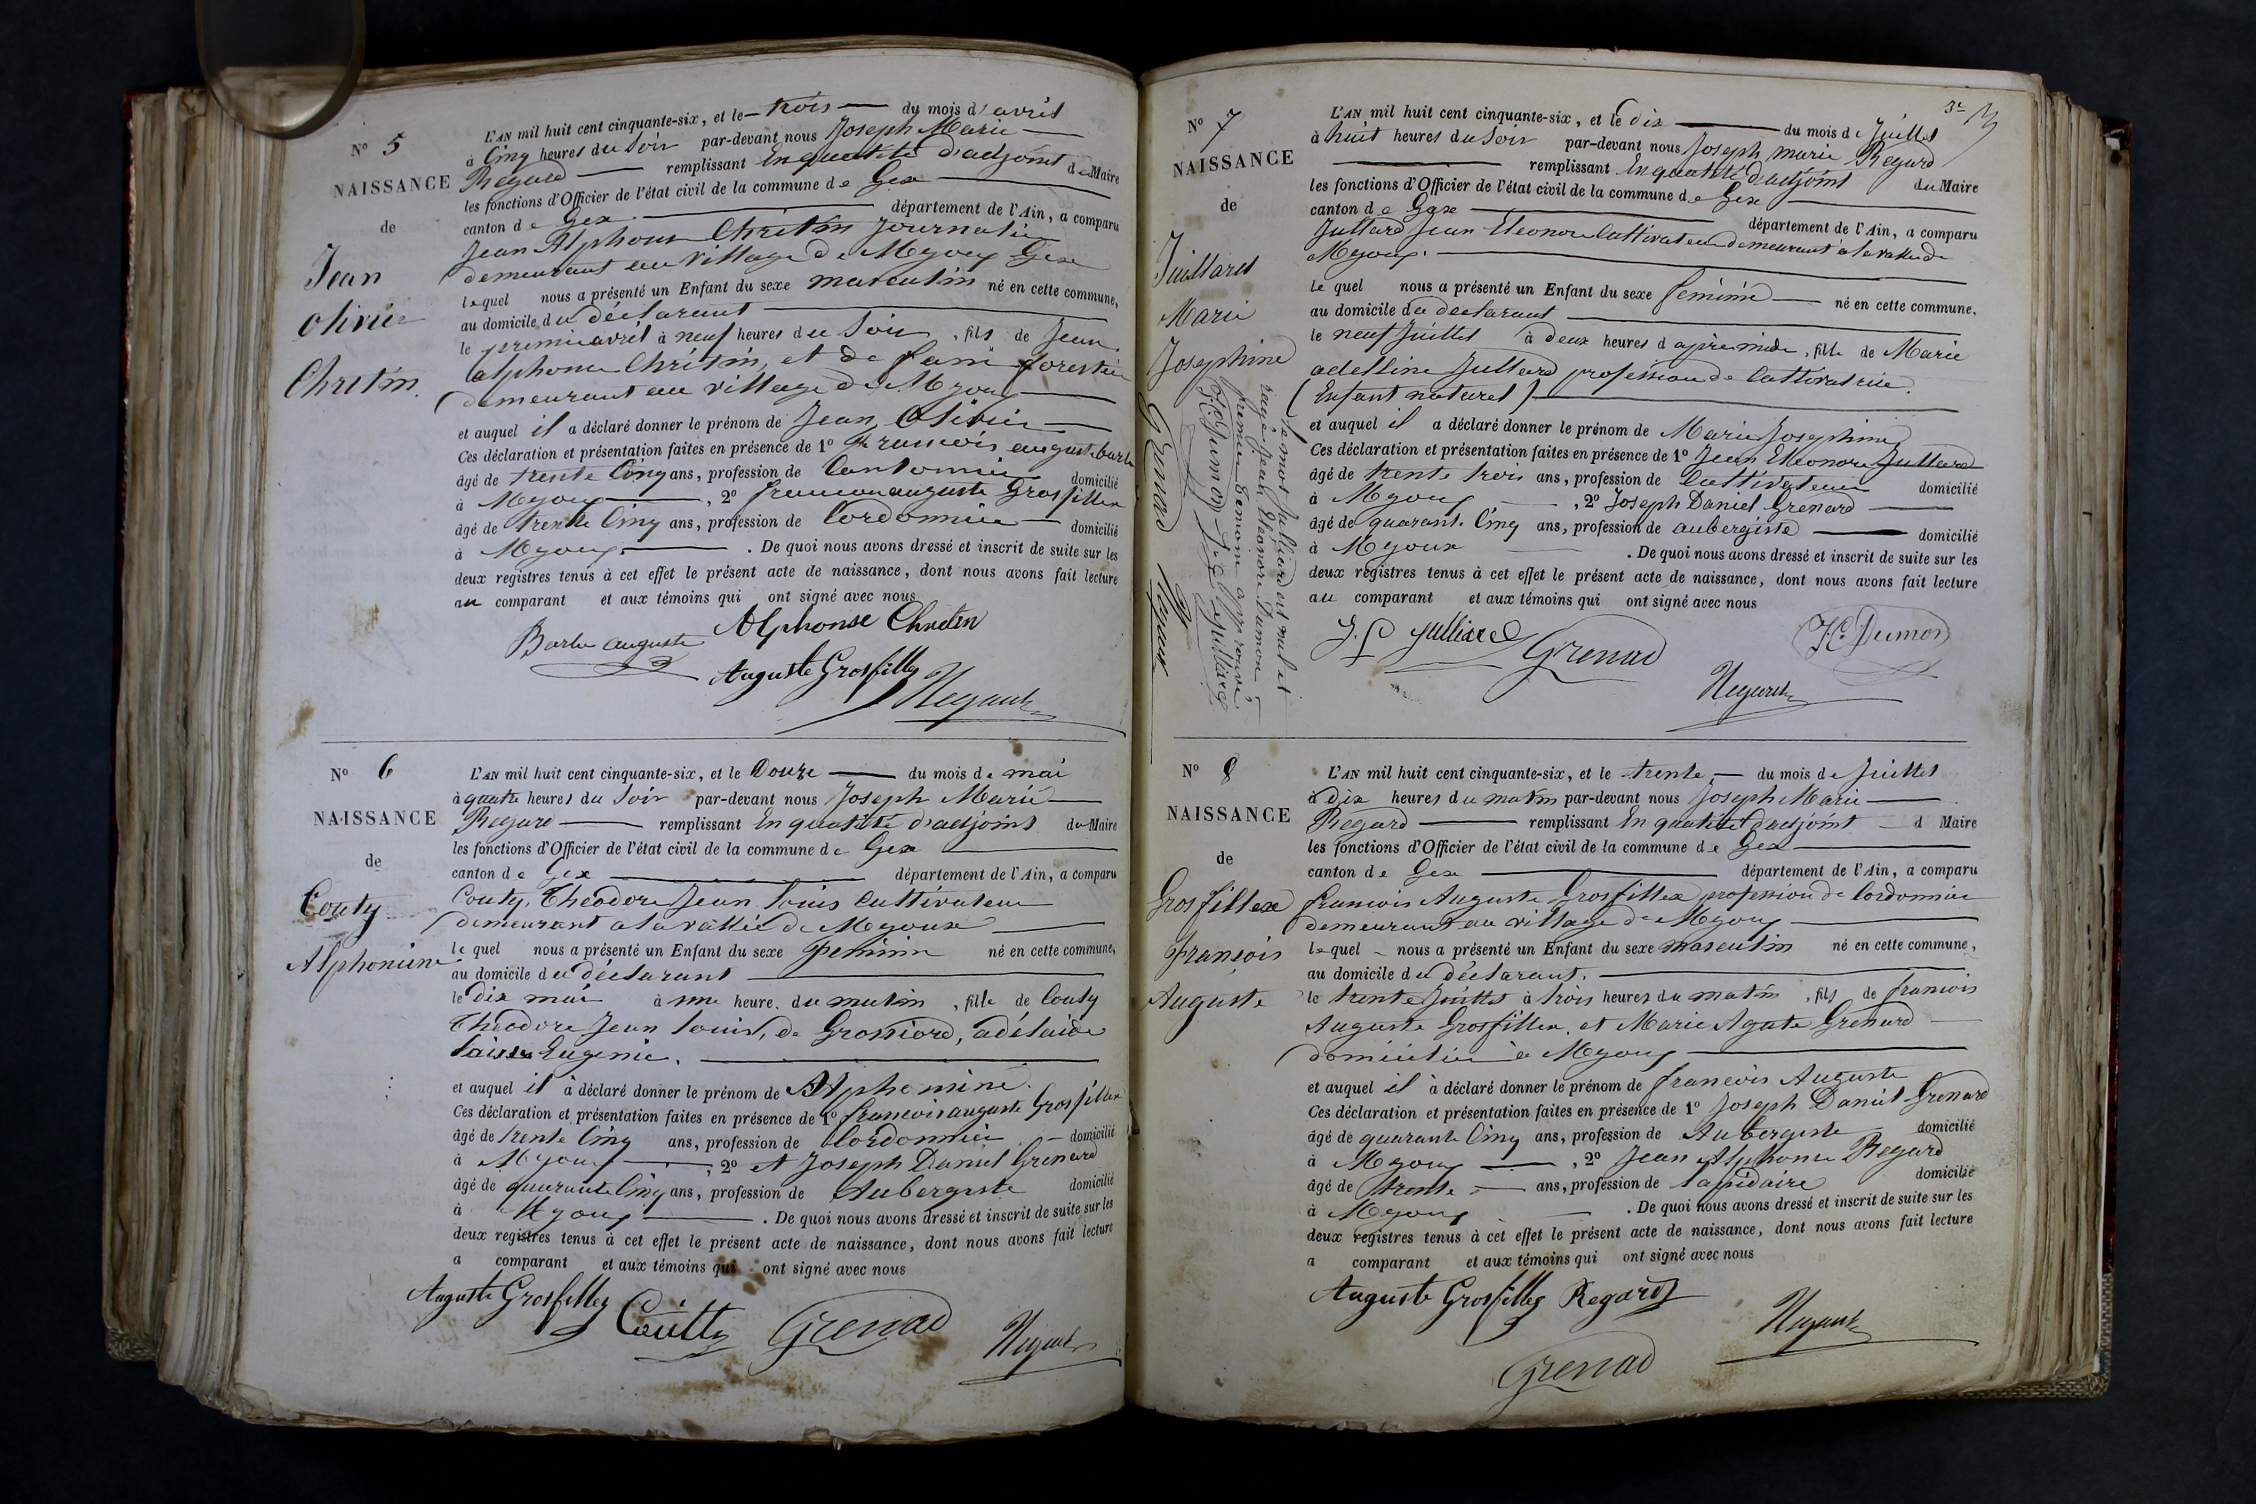 N° 5
NAISSANCE
de
Jean
Olivier
Chritin.
L'AN mil huit cent cinquante-six, et le trois du mois d'avril
à Cinq heures du Soir par-devant nous Joseph Marie
Regard remplissant En qualité d'adjoint de Maire
les fonctions d'Officier de l'état civil de la commune de Gex
canton de Gex département de l'Ain, a comparu
Jean Alphonse Chritin Journalier
demeurant au village de Mijoux Gex
lequel nous a présenté un Enfant du sexe masculin né en cette commune,
au domicile du déclarant
le premier avril à neuf heures du Soir, fils de Jean
alphonse Chritin, et de forestier
demeurant au village de Mijoux
et auquel il a déclaré donner le prénom de Jean Olivier
Ces déclaration et présentation faites en présence de 1° francois auguste barbe
âgé de trente Cinq ans, profession de Cantonnier domicilié
à Mijoux, 2° francois auguste Grosfillex
âgé de trente Cinq ans, profession de Cordonnier domicilié
à Mijoux. De quoi nous avons dressé et inscrit de suite sur les
deux registres tenus à cet effet le présent acte de naissance, dont nous avons fait lecture
au comparant et aux témoins qui ont signé avec nous
Alphonse Chritin
Barbe auguste
Auguste Grosfillex
Regard
N° 6
NAISSANCE
de
Couty
Alphonsine
L'AN mil huit cent cinquante-six, et le Douze du mois de mai
à quatre heures du Soir par-devant nous Joseph Marie
Regard remplissant En qualité d'adjoint du Maire
les fonctions d'Officier de l'état civil de la commune de Gex
canton de Gex département de l'Ain, a comparu
Couty, Théodore Jean Louis Cultivateur
demeurant à la vallée de Mijoux
lequel nous a présenté un Enfant du sexe feminin né en cette commune,
au domicile du déclarant
le dix mai à une heure du matin, fille de Couty
Théodore Jean Louis, de Grossiord, adélaide
Eugenie.
et auquel il à déclaré donner le prénom de Alphonsine.
Ces déclaration et présentation faites en présence de 1° francois auguste Grosfillex
âgé de trente Cinq ans, profession de Cordonnier domicilié
à Mijoux, 2° et Joseph Daniel Grenard
âgé de quarante Cinq ans, profession de Aubergiste domicilié
à Mijoux. De quoi nous avons dressé et inscrit de suite sur les
deux registres tenus à cet effet le présent acte de naissance, dont nous avons fait lecture
a comparant et aux témoins qui ont signé avec nous
Auguste Grosfillex Coutty Grenard
Regard
N° 7
NAISSANCE
de
Juillard
Marie
Josephine
le mot Julliard est nul et
rayé Jean Eleonore Dumon
premier temoin approuvé
Grenard Regard
L'AN mil huit cent cinquante-six, et le dix du mois de Juillet
à huit heures du Soir par-devant nous Joseph marie Regard
remplissant En qualité d'adjoint du Maire
les fonctions d'Officier de l'état civil de la commune de Gex
canton de Gex département de l'Ain, a comparu
Jullard Jean Eleonore Cultivateur demeurant à la vallée de
Mijoux.
lequel nous a présenté un Enfant du sexe feminin né en cette commune.
au domicile du déclarant
le neuf Juillet à deux heures d'après midi, fille de Marie
adelline Jullard profession de Cultivatrice.
(Enfant naturel)
et auquel il a déclaré donner le prénom de Marie Josephine
Ces déclaration et présentation faites en présence de 1° Jean Eleonore Jullard
âgé de trente trois ans, profession de Cultivateur domicilié
à Mijoux, 2° Joseph Daniel Grenard
âgé de quarante Cinq ans, profession de aubergiste domicilié
à Mijoux. De quoi nous avons dressé et inscrit de suite sur les
deux registres tenus à cet effet le présent acte de naissance, dont nous avons fait lecture
au comparant et aux témoins qui ont signé avec nous
Julliard Grenard Dumon
Regard
N° 8
NAISSANCE
de
Grosfillex
françois
Auguste
L'AN mil huit cent cinquante-six, et le trente du mois de Juillet
à dix heures du matin par-devant nous Joseph Marie
Regard remplissant En qualité d'adjoint d Maire
les fonctions d'Officier de l'état civil de la commune de Gex
canton de Gex département de l'Ain, a comparu
francois Auguste Grosfillex profession de Cordonnier
demeurant au village de Mijoux
lequel nous a présenté un Enfant du sexe masculin né en cette commune,
au domicile du déclarant.
le trente Juillet à trois heures du matin, fils de francois
Auguste Grosfillex. et Marie Agate Grenard
domicilié à Mijoux
et auquel il à déclaré donner le prénom de francois Auguste
Ces déclaration et présentation faites en présence de 1° Joseph Daniel Grenard
âgé de quarante Cinq ans, profession de Aubergiste domicilié
à Mijoux, 2° Jean Alphonse Regard
âgé de trente ans, profession de lapidaire domicilié
à Mijoux. De quoi nous avons dressé et inscrit de suite sur les
deux registres tenus à cet effet le présent acte de naissance, dont nous avons fait lecture
a comparant et aux témoins qui ont signé avec nous
Auguste Grosfillex Regard
Regard
Grenard